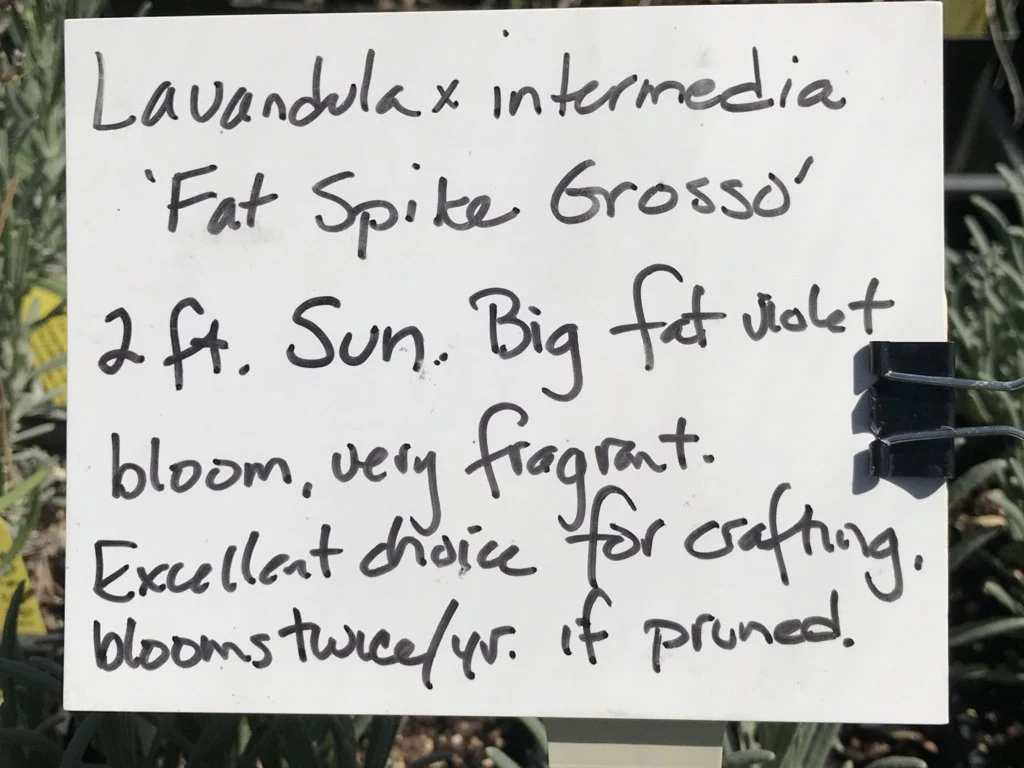 Lavandula x intermedia
'Fat Spike Grosso'
2 ft. Sun. Big fat violet
bloom, very fragrant.
Excellent choice for crafting,
blooms twice/yr. if pruned.